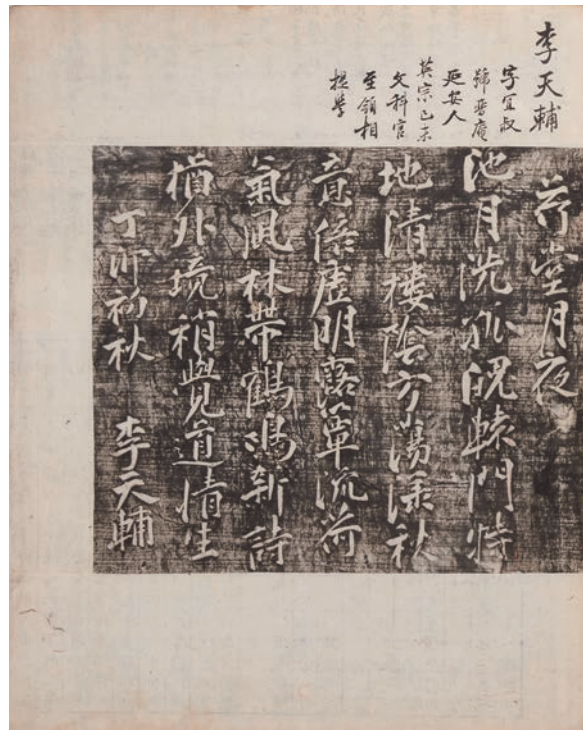 李天輔
字宜叔
號晋庵
延安人
英宗己未
文科官
至領相
提學
荷堂月夜
池月轅門特
地清樓陰方蕩漾秋
意倍虛明露簟流荷
氣風林帶鶴鳴新詩
外境稍覺道情生
丁卯初秋 李天輔